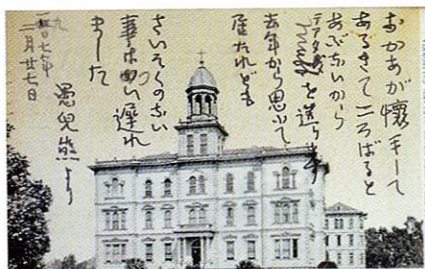 おかあが懐手して
あるきてころばると
あぶないから
を送り
去年から思ふて
居たれども
さいそくのない
事 つい遅れ
ました
愚兒熊より
一九〇七年
二月廿七日